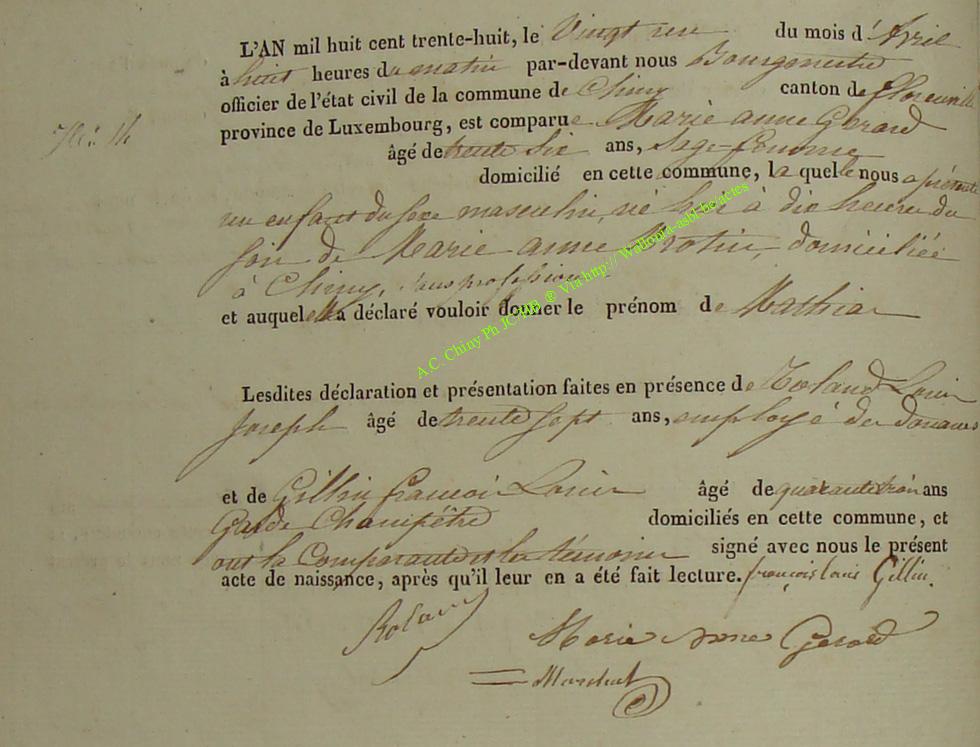 L'AN mil huit cent trente-huit, le Vingt un du mois d'Avril
à huit heures du matin par-devant nous Bourgmestre
officier de l'état civil de la commune de Chiny canton de florenville
province de Luxembourg, est comparue Marie anne Gerard
N° 14
âgé de trente six ans, Sage-femme
domicilié en cette commune, la quelle nous a présenté
un enfant du sexe masculin, né hier à dix heures du
soir de Marie anne domiciliée
à Chiny, sans profession
et auquel elle a déclaré vouloir donner le prénom de Mathias
A.C. Chiny Ph JC HB ® Via http://Wallonia-asbl.be/actes
Lesdites déclaration et présentation faites en présence de Roland Louis
Joseph âgé de trente sept ans, employé des douanes
et de Gillin françois Louis âgé de quarante trois ans
Garde Champêtre domiciliés en cette commune, et
ont la Comparante et les témoins signé avec nous le présent
acte de naissance, après qu'il leur en a été fait lecture. françois louis Gillin.
Roland
Marie Anne Gerard